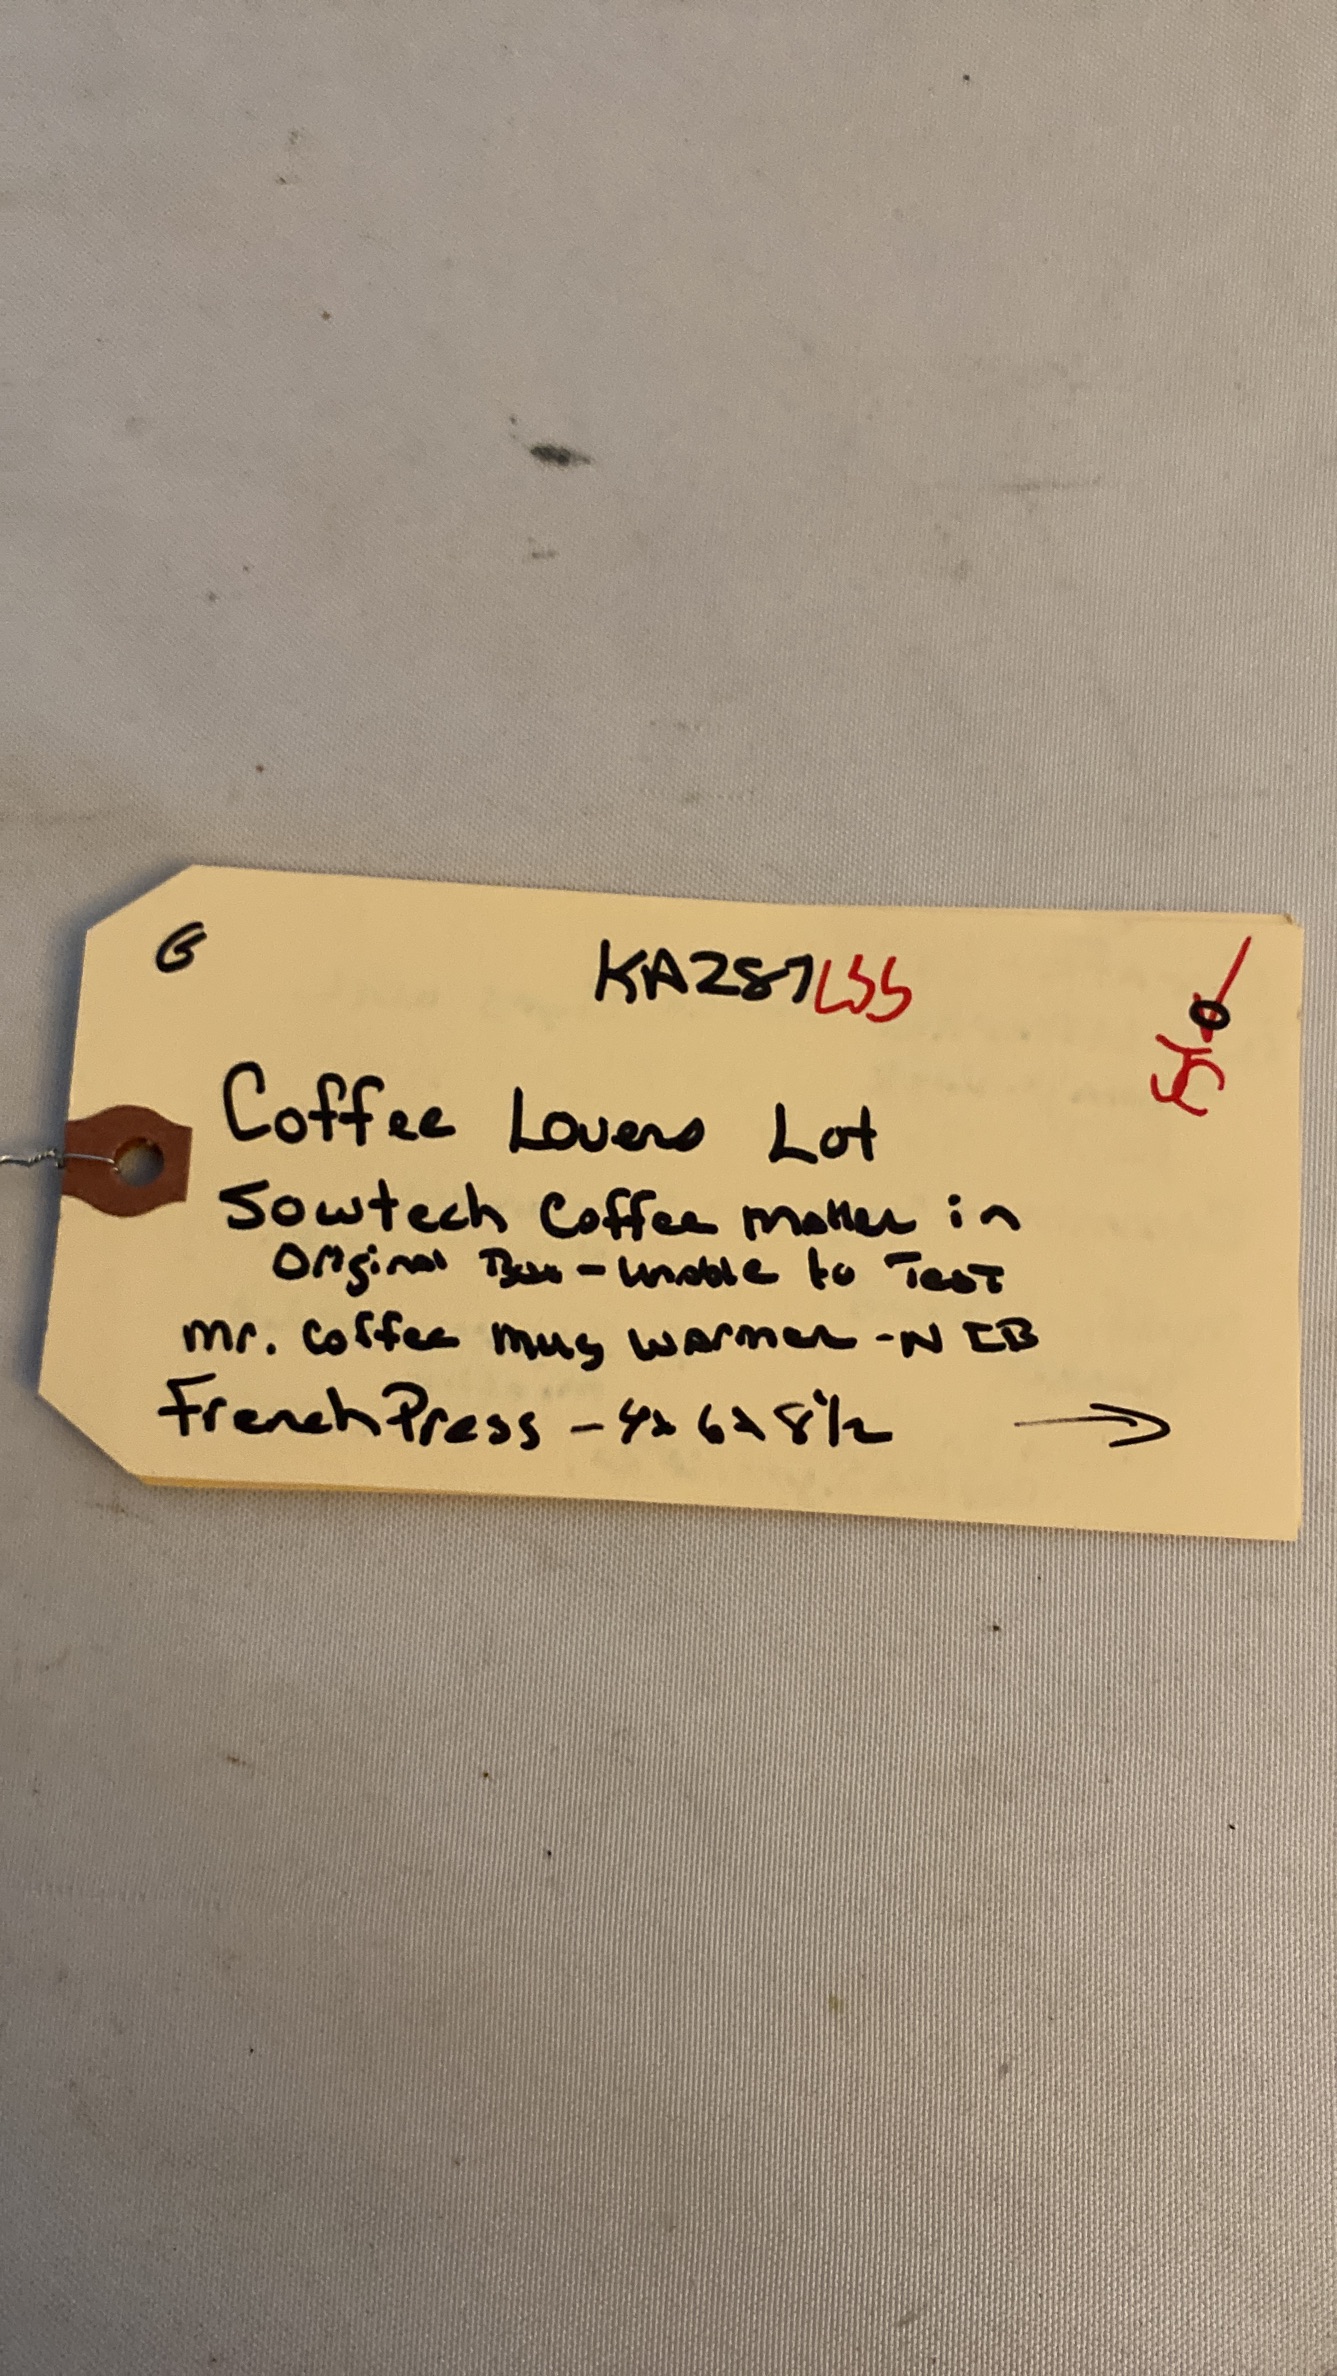 G
KA287LSS
Coffee Lovers Lot
Sowtech Coffee maker in
Original Box - Unable to Test
mr. coffee mug warmer - NIB
French Press - 4x6x8 1/2